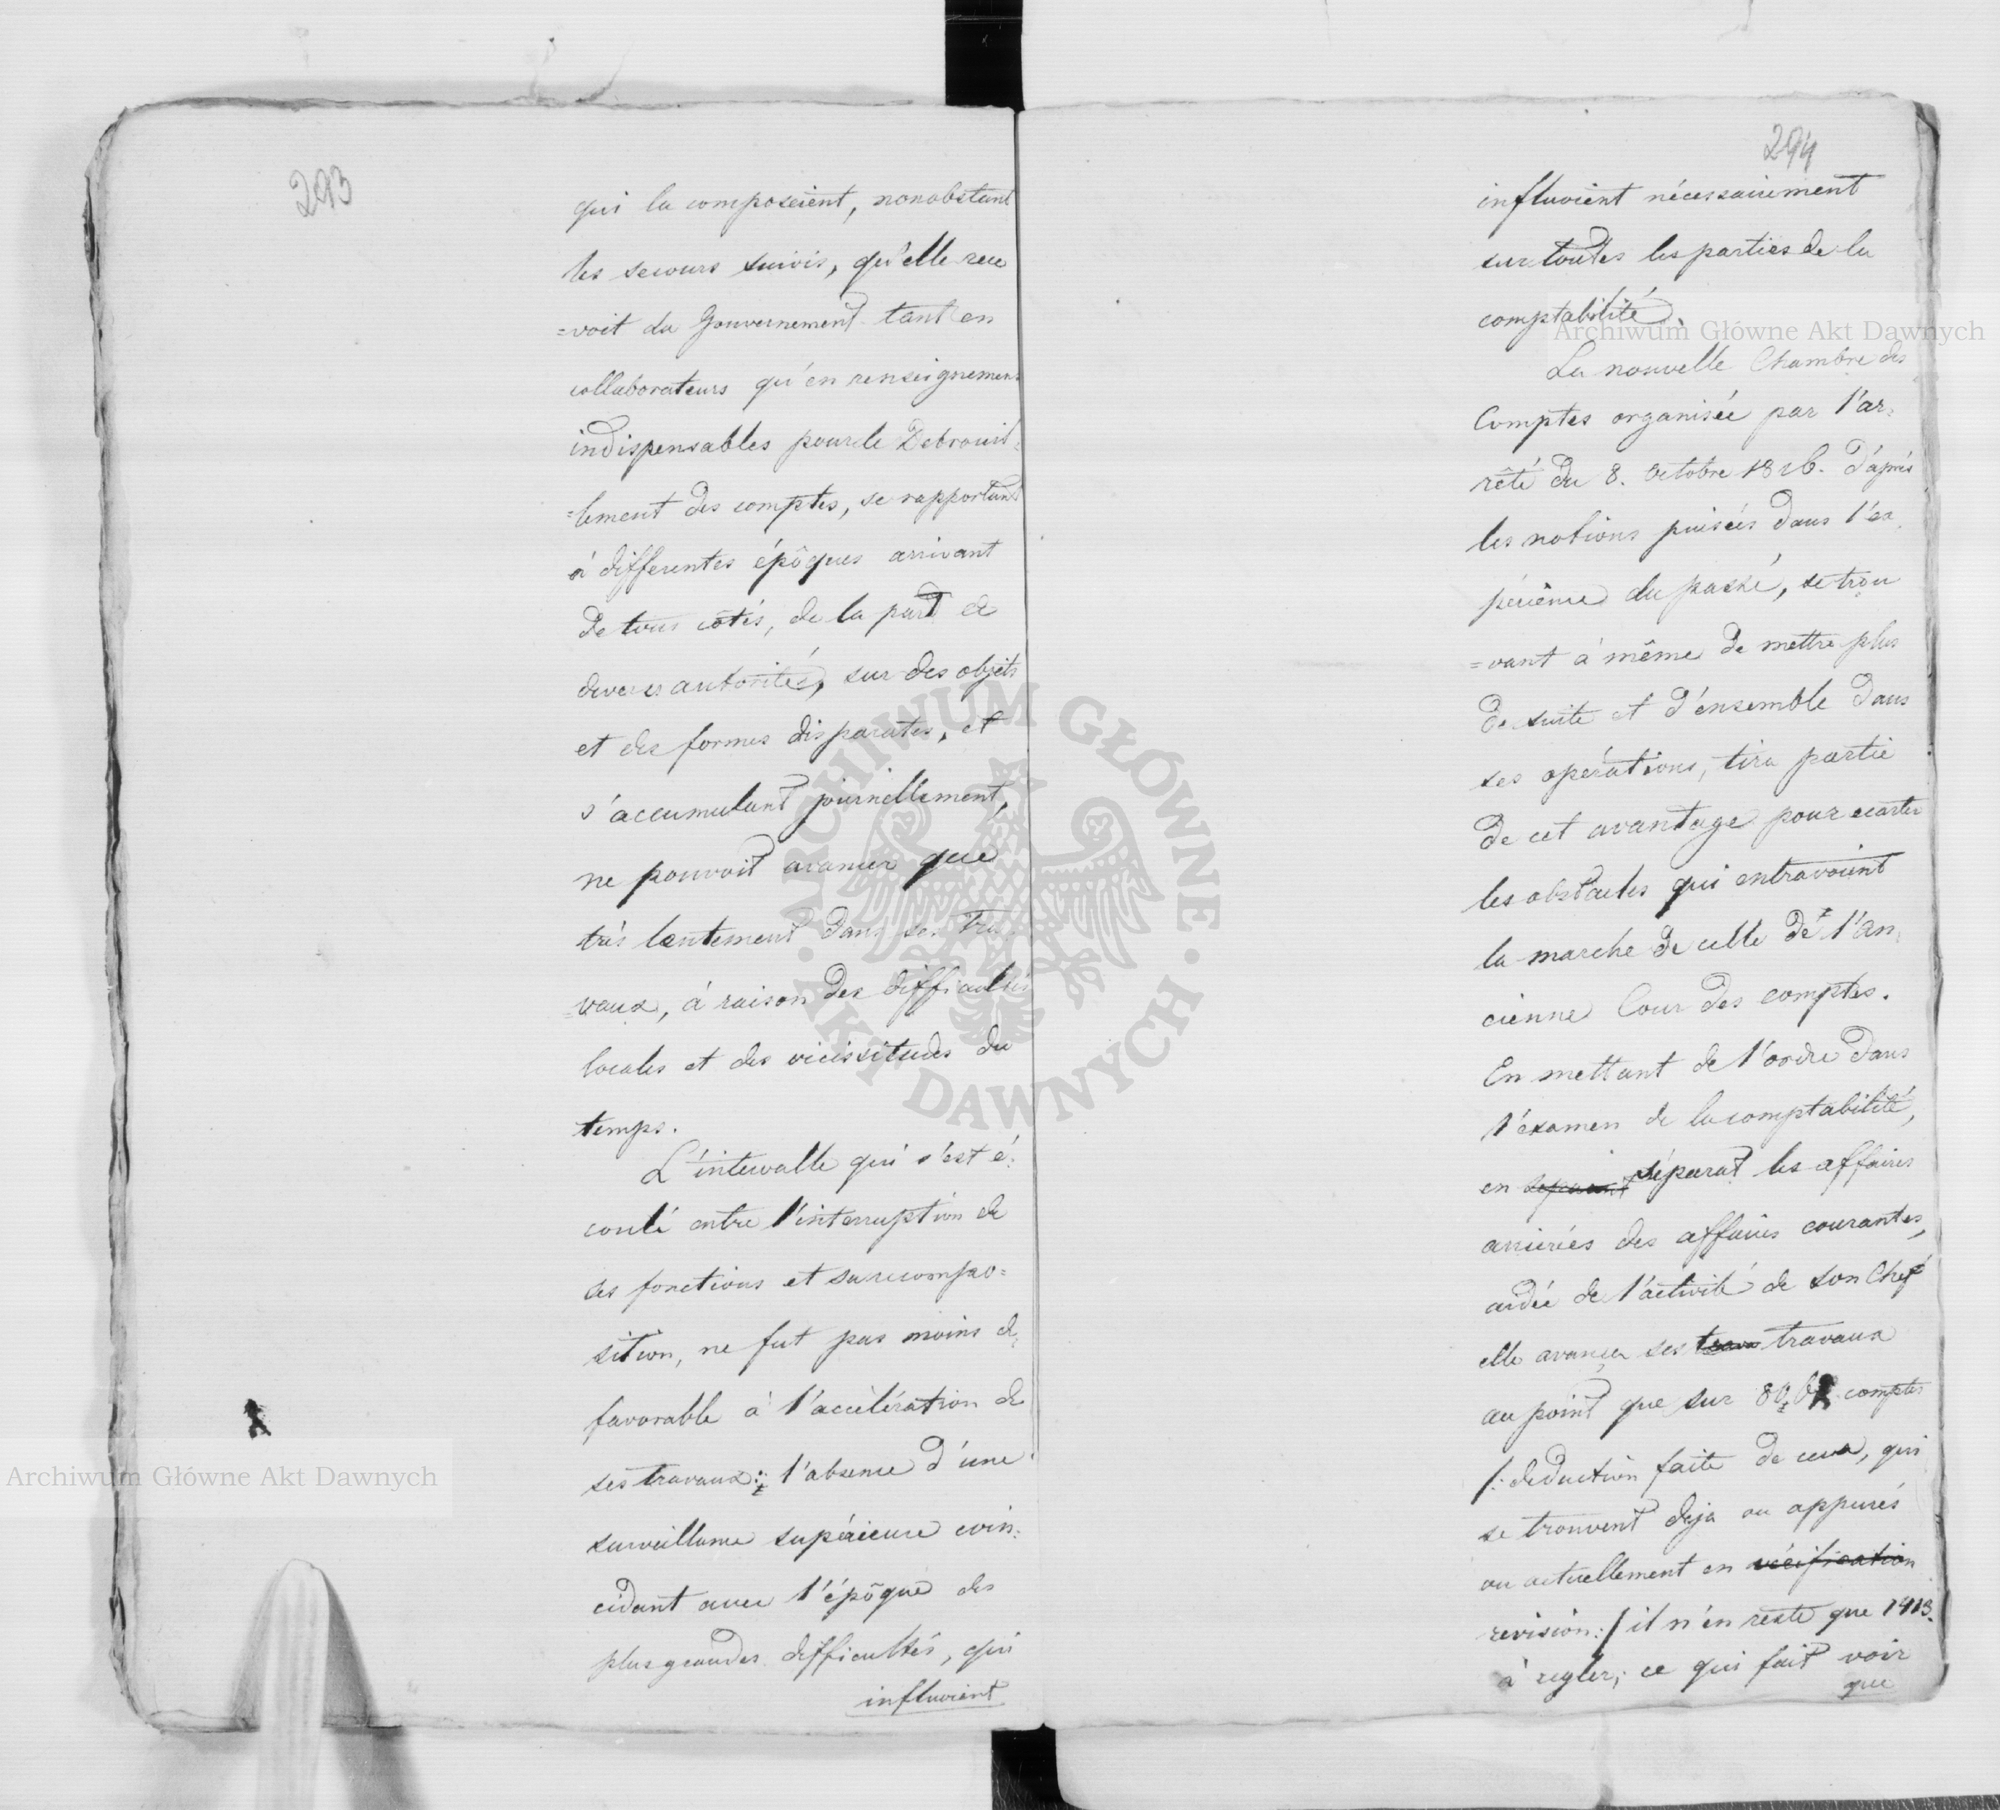 293
qui la composoient, nonobstant
les secours suivis, qu'elle rece
=voit du Gouvernement tant en
collaborateurs qu'en renseignemens
indispensables pour le Debrouil=
=lement des comptes, se rapportant
à differentes épôques arrivant
de tous côtés, de la part de
diverses autorités, sur des objets
et des formes disparates, et
s'accumulant journellement,
ne pouvoit avancer que
très lentement dans ses tra=
=vaux, à raison des difficultés
locales et des vicissitudes du
temps.
L'intervalle qui s'est é=
coulé entre l'interruption de
ses fonctions et sa recompo=
sition, ne fut pas moins dé
favorable à l'accélération de
ses travaux: l'absence d'une
surveillance supérieure coin=
cidant avec l'épôque des
plus grandes difficultés, qui
influoient
294
influoient nécessairement
sur toutes les parties de la
comptabilité.
La nouvelle Chambre des
Comptes organisée par l'ar=
rêté du 8. Octobre 1816. d'après
les notions puisées dans l'ex
périence du passé, se trou
=vant à même de mettre plus
de suite et d'ensemble dans
ses opérations, tira partie
de cet avantage pour ecarter
les obstacles qui entravoient
la marche de celle de l'an=
cienne Cour des comptes.
En mettant de l'ordre dans
l'éxamen de la comptabilité,
en séparat les affaires
arriérées des affaires courantes,
aidée de l'activité de son Chef
elle avança ses travaux
au point que sur comptes
/: deduction faite de ceux, qui
se trouvent deja ou appurés
ou actuellement en vérification
revision:/ il n'en reste que 1413.
à regler; ce qui fait voir
que
Archiwum Główne Akt Dawnych
Archiwum Główne Akt Dawnych
ARCHIWUM GŁÓWNE · AKT DAWNYCH ·